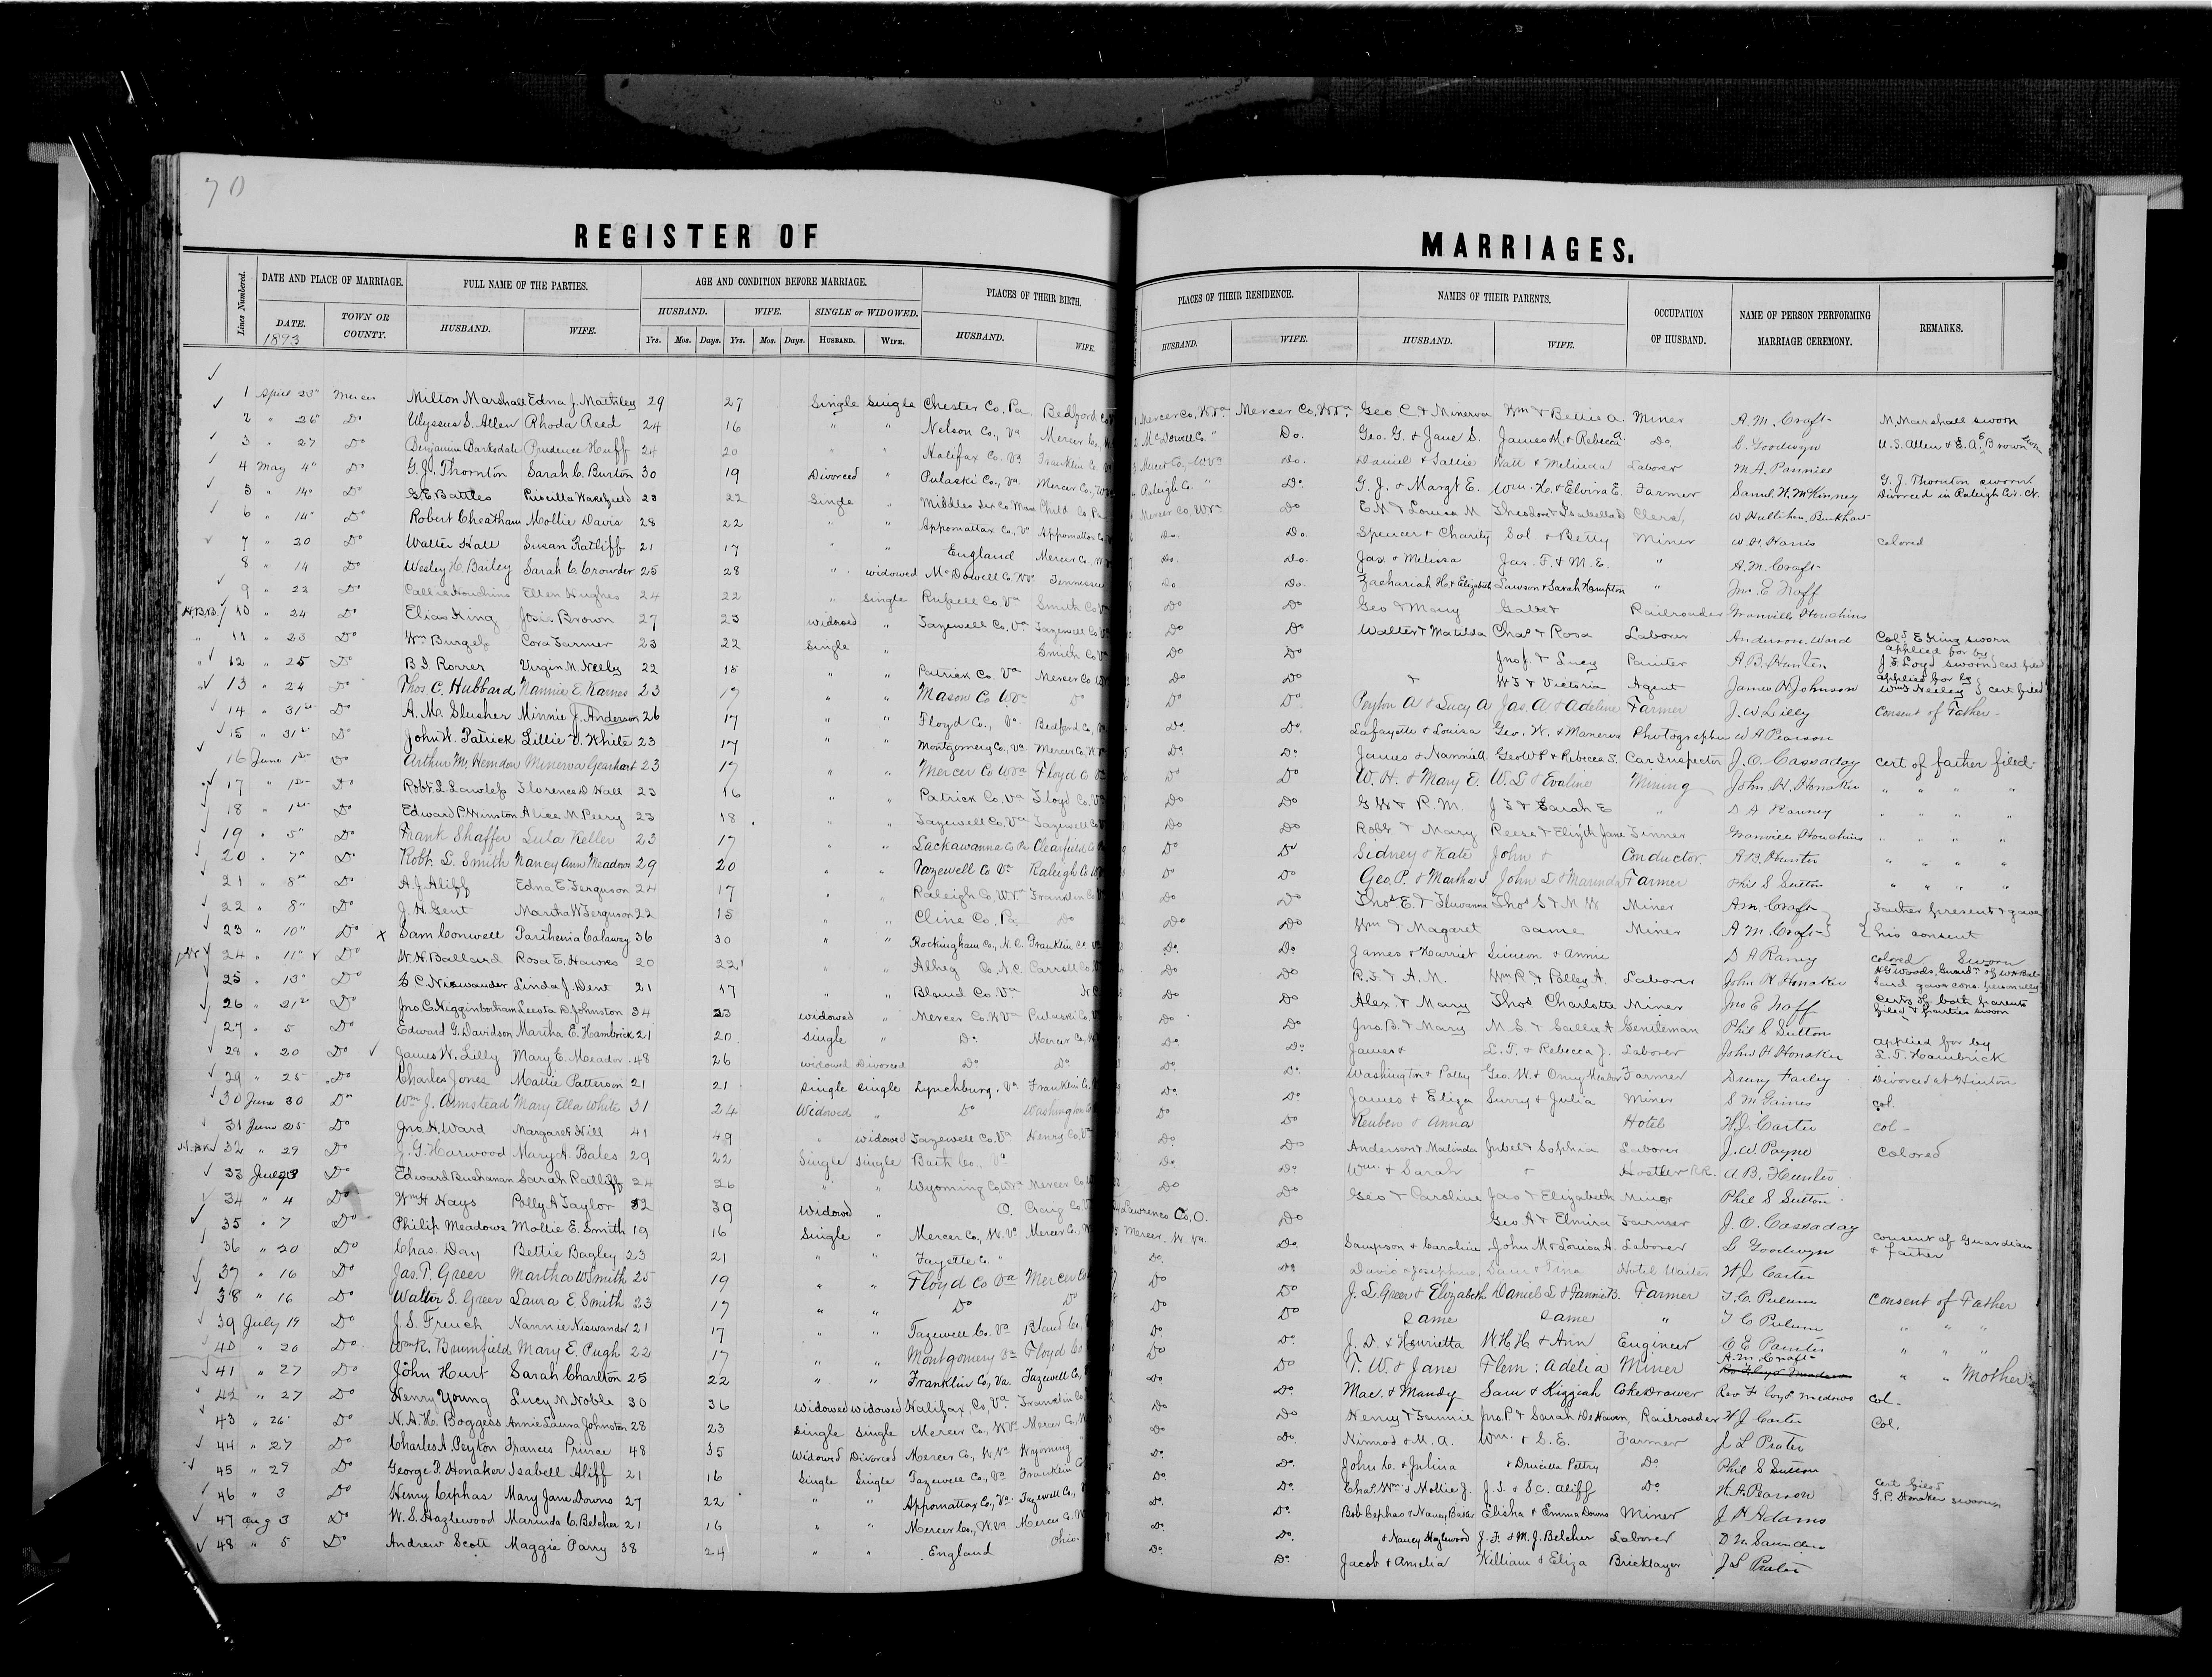 70
REGISTER OF MARRIAGES.
Lines Numbered. DATE AND PLACE OF MARRIAGE. FULL NAME OF THE PARTIES. AGE AND CONDITION BEFORE MARRIAGE. PLACES OF THEIR BIRTH. PLACES OF THEIR RESIDENCE. NAMES OF THEIR PARENTS. OCCUPATION OF HUSBAND. NAME OF PERSON PERFORMING MARRIAGE CEREMONY. REMARKS.
DATE. 1893 TOWN OR COUNTY. HUSBAND. WIFE. HUSBAND. WIFE. SINGLE or WIDOWED. HUSBAND. WIFE. HUSBAND. WIFE. HUSBAND. WIFE.
Yrs. Mos. Days. Yrs. Mos. Days. HUSBAND. WIFE.
1 April 23" Mercer Milton Marshall Edna J. 29 27 Single Single Chester Co, Pa. Bedford Co Mercer Co, W Va Mercer Co, W Va Geo C. & Minerva Wm & Bettie A. Miner A. M. Craft M. Marshall sworn
2 " 26" Do Ulyssus S. Allen Rhoda Reed 24 16 " " Nelson Co., Va Mercer Co, McDowell Co " Do. Geo. G. & Jane S. James M. & Rebecca Do. C. Goodwyn U. S. Allen & E. A. Brown
3 " 27 Do Benjamin Barksdale Prudence Huff 24 20 " " Halifax Co, Va Franklin Co. Mercer Co, W Va Do. Daniel & Sallie Watt & Melinda Laborer M A. Pannier
4 May 4" Do G. J. Thornton Sarah C. Burton 30 19 Divorced " Pulaski Co., Va. Mercer Co., Raleigh Co. " Do. G. J. & Margt E. Wm. H. & Elvira E. Farmer Saml. H. McKinney G. J. Thornton sworn. Divorced in Raleigh Cir. Ct.
5 " 14" Do G. E Battles Priscilla Wakefield 23 22 Single " Middlesex Co Mass Phild Co Pa Mercer Co, W Va Do E. N & Louisa M Theodore & Isabella D Clerk
6 " 14" Do Robert Cheatham Mollie Davis 28 22 " " Appomattax Co, Va Appomattax Co Do. Do. Spencer & Charity Sol & Betty Miner W. H. Harris colored
7 " 20 Do Walter Hall Susan Ratliff 21 17 " " England Mercer Co. Do. Do. Jas & Melissa Jas. F. & M. E. " A. M. Craft
8 " 14 Do Wesley H. Bailey Sarah C. Crowder 25 28 " widowed McDowell Co. W Va Tennessee Do Do. Zachariah H. & Elizabeth Lawson & Sarah Hampton " Jno. E. Naff
9 " 22 Do Callie Houchins Ellen Hughes 24 22 " Single Russell Co Va Smith Co Do Do Geo & Mary Railroader Granville Houchins
10 " 24 Do Elias King Josie Brown 27 23 widowed " Tazewell Co, Va Tazewell Co Do Do Walter & Matilda Chas & Rosa Laborer Anderson Ward Cold E King sworn
11 " 23 Do Wm Burgess Cora Farmer 23 22 Single " Smith Co Do Do Jno J. & Lucy Painter A. B. Hunter applied for by J. F. Loyd sworn cert filed
12 " 25 Do B I Rorrer Virgin M. Neely 22 18 " " Patrick Co. Va Mercer Co Do Do & W T & Victoria Agent James H Johnson applied for by Wm T Neeley cert filed
13 " 24 Do Thos C. Hubbard Nannie E. Karnes 23 17 " " Mason C W Va Do Do Do Peyton A & Lucy A Jas. A & Adeline Farmer J. W Lilly Consent of Father
14 " 31st Do A. M. Slusher Minnie J. Anderson 26 17 " " Floyd Co., Va. Bedford Co, Do. Do. Lafayette & Louisa Geo. W. & Manerva Photographer W A Pearson
15 " 31st Do John W. Patrick Lillie V. White 23 17 " " Montgomery Co, Va Mercer Co, Do. Do James & Nannie A. Geo W P & Rebecca S. Car Inspector J. O. Cassaday cert of father filed
16 June 1st Do Arthur M. Herndon Minerva Gearheart 23 17 " " Mercer Co W Va Floyd Co Do Do W. H. & Mary E. W. L & Evaline Mining John H. Honaker " " " "
17 " 1st Do Robt. L. Lawless Florence D Hall 23 16 " " Patrick Co, Va Floyd Co. Do Do G W & R. M. J T & Sarah E " D A Ramey " " " "
18 " 1st Do Edward P. Winston Alice M Perry 23 18 " " Tazewell Co, Va Tazewell Co Do Do Robt. & Mary Reese & Elizth Jane Tinner Granville Houchins " " " "
19 " 5" Do Frank Shaffer Lula Keller 23 17 " " Lackawanna Co Pa Clearfield Co Do Do Sidney & Kate John & Conductor A B. Hunter " " " "
20 " 7" Do Robt. L. Smith Nancy Ann Meadows 29 20 " " Tazewell Co Va Raleigh Co Do Do Geo. P. & Martha J John L & Marinda Farmer Phil S Sutton " " " "
21 " 8" Do A. J. Aliff Edna E. Ferguson 24 17 " " Raleigh Co, W. Va Franklin Co Do Do Thos E. & Thos S & M W Miner A. M. Craft Father present & gave
22 " 8" Do J. H. Gent Martha W Ferguson 22 15 " " Cline Co, Pa. Do Do Do Wm & Magaret same Miner A. M. Craft his consent
23 " 10" Do Sam Conwell Parthenia Calaway 36 30 " " Rockingham Co., N. C. Franklin Co. Do. Do James & Harriet Simeon & Annie D A Ramey colored Sworn
24 " 11" Do W. H. Ballard Rosa E. Hawks 20 22 " " Alheg Co, N. C. Carroll Co, Do Do R. F. & A. M. Wm R. & Polley A. Laborer John H Honaker H G Woods, Guardn of W H Ballard gave cons. personally
25 " 13" Do C C Niswander Linda J. Dent 21 17 " " Bland Co Va N. C Do Do Alex. & Mary Thos Charlotte Miner Jno E Naff Certs of both parents filed & parties sworn
26 " 21st Do Jno. C. Higginbotham Leeota D. Johnston 34 23 widowed " Mercer Co. W Va Pulaski Co, Do Do Jno. B. & Mary M. S. & Sallie A Gentleman Phil S Sutton
27 " 5 Do Edward G. Davidson Martha E. Hambrick 21 20 Single " Do. Mercer Co, Do. Do. James & L. T. & Rebecca J. Laborer John H Honaker applied for by L. T. Hambrick
28 " 20 Do James W. Lilly Mary E. Meador 48 26 widowed Divorced Do Do Do. Do. Washington & Polley Geo. W. & Omey Meador Farmer Drury Farley Divorced at Hinton
29 " 25 Do Charles Jones Mattie Patterson 21 21 single single Lynchburg, Va. Franklin Co. Do. Do. James & Eliza Surry & Julia Miner S M Gaines col.
30 June 30 Do Wm J. Armstead Mary Ella White 31 24 Widowed " Do Washington Do Do Reuben & Anna Hotel H. J. Carter col-
31 June 25 Do Jno. H. Ward Margaret Hill 41 49 " widowed Tazewell Co. Va Henry Co. Va Do. Do Anderson & Malinda Jubel & Sophia Laborer J. W. Payne Colored
32 " 29 Do J. G. Harwood Mary H. Bales 29 22 Single Single Bath Co., Va Do. Do Wm. & Sarah & Hostler R.R. A B. Hunter
33 July 3 Do Edward Buchanan Sarah Ratliff 24 26 " " Wyoming Co, W Va Mercer Co Do Do Geo & Caroline Jas & Elizabeth Minor Phil S Sutton
34 " 4 Do Wm H Hays Polly A Taylor 52 39 Widowed " O. Craig Co Lawrence Co, O. Do Geo A & Elmira Farmer J. O. Cassaday
35 " 7 Do Philip Meadows Mollie E. Smith 19 16 Single " Mercer Co, W. Va Mercer Co, Mercer, W. Va. Do. Sampson & Caroline John M & Louisa A. Laborer C Goodwyn Consent of Guardian & Father
36 " 20 Do Chas. Day Bettie Bagley 23 21 " " Fayette Co " Do. Do. David & Josephine Sam & Tina Hotel Waiter H J. Carter
37 " 16 Do Jas. T. Greer Martha W Smith 25 19 " " Floyd Co Va Mercer Co Do Do J. L. Greer & Elizabeth Daniel L & Fannie B. Farmer T. C. Pulum Consent of Father
38 " 16 Do Walter S. Greer Laura E. Smith 23 17 " " Do Do Do Do same same " T C Pulum " " "
39 July 19 Do J. S. French Nannie Niswander 21 17 " " Tazewell Co. Va Bland Co. Do. Do. J. D. & Henrietta W. H. H. & Ann Engineer C E Painter " " "
40 " 20 Do Wm R. Brumfield Mary E. Pugh 22 17 " " Montgomery Va Floyd Co Do Do T. W. & Jane Flem: Adelia Miner A. M. Craft " " Mother
41 " 27 Do John Hurt Sarah Charlton 25 22 " " Franklin Co, Va. Tazewell Co, Do Do. Mac. & Mandy Sam & Kizziah Coke Drawer Rev Floyd Medows col-
42 " 27 Do Henry Young Lucy N. Noble 30 36 widowed widowed Halifax Co, Va Franklin Co Do Do Henry & Fannie Jno. P. & Sarah DeHaven, Railroader H J Carter Col.
43 " 26 Do N. A. H. Boggess Annie Laura Johnston 28 23 single single Mercer Co, W. Va Mercer Co, Do Do. Nimrod & M. A. Wm. & S. E. Farmer J L Prater
44 " 27 Do Charles A. Peyton Frances Prince 48 35 Widowed Divorced Mercer Co., W. Va Wyoming " Do. Do. John C. & Julina & Drucilla Pettry Do. Phil S Sutton
45 " 29 Do George P. Honaker Isabell Aliff 21 16 Single Single Tazewell Co., Va Franklin Co Do. Do. Chas. Wm. & Mollie J. J. T. & S C. Aliff Do W. A. Pearson Cert filed G. P. Honaker sworn
46 " 3 Do Henry Cephas Mary Jane Downs 27 22 " " Appomattax Co., Va. Tazewell Co., Do. Do. Bob Cephas & Nancy Baker Elisha & Emma Downs Miner J H Adams
47 Aug 3 Do W. S. Hazlewood Marinda C. Belcher 21 16 " " Mercer Co., W. Va Mercer Co. Do. Do. & Nancy Hazlewood J. F. & M. J. Belcher Laborer D. W. Saunders
48 " 5 Do Andrew Scott Maggie Parry 38 24 " " England Ohio Do. Do. Jacob & Amelia William & Eliza Bricklayer J L Prater